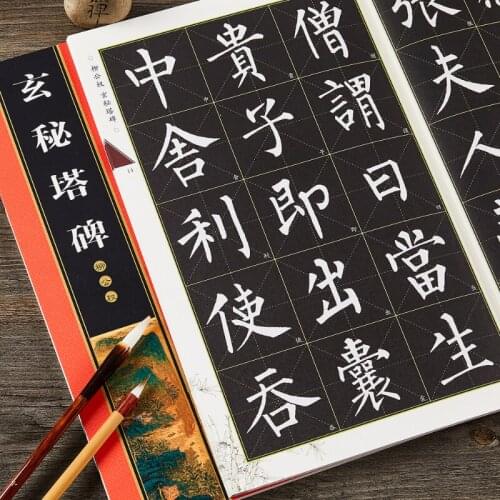 玄秘塔碑
柳公权
張夫人
僧謂曰當生
貴子即出囊
中舍利使吞
柳公权 玄秘塔碑